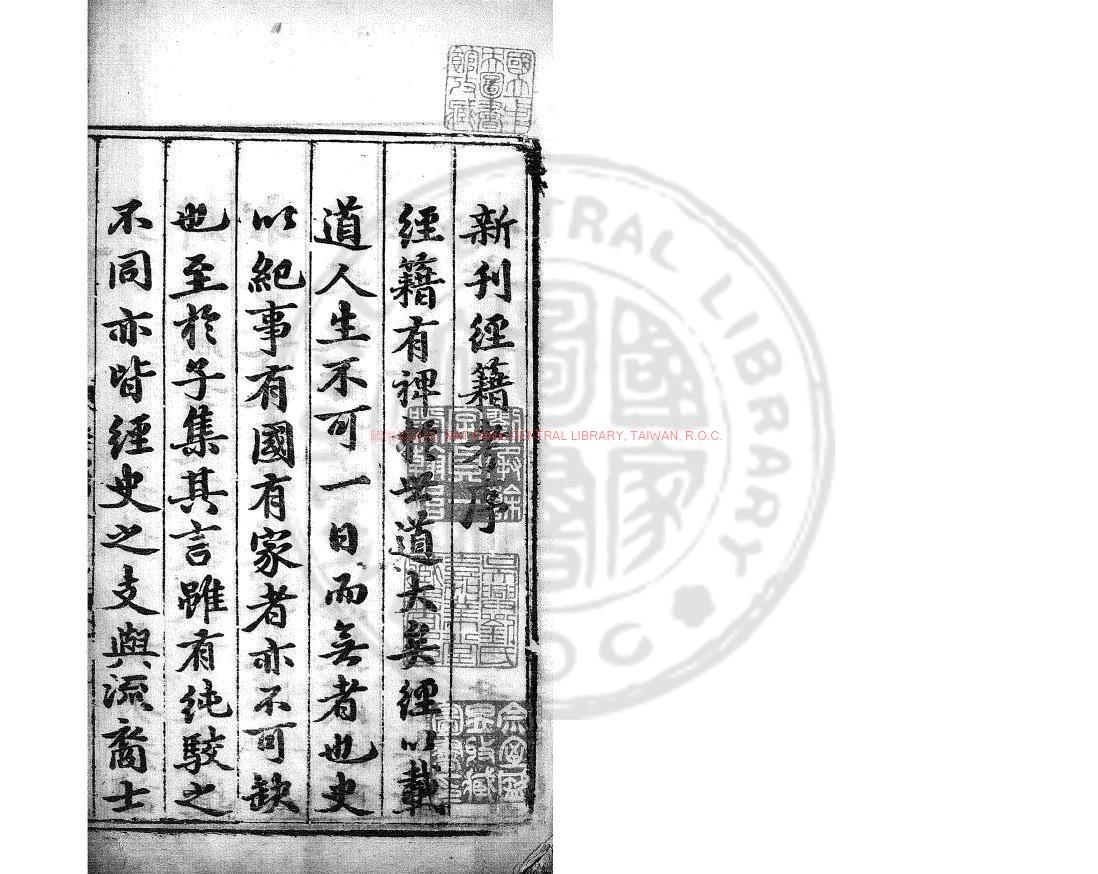 新刊經籍考序
經籍有裨於世道大矣經以載
道人生不可一日而無者也史
以紀事有國有家者亦不可缺
也至於子集其言雖有純駁之
不同亦皆經史之支與流裔士
國立中央圖書館收藏
吳興劉氏嘉業堂藏書記
NATIONAL CENTRAL LIBRARY, TAIWAN, R.O.C.